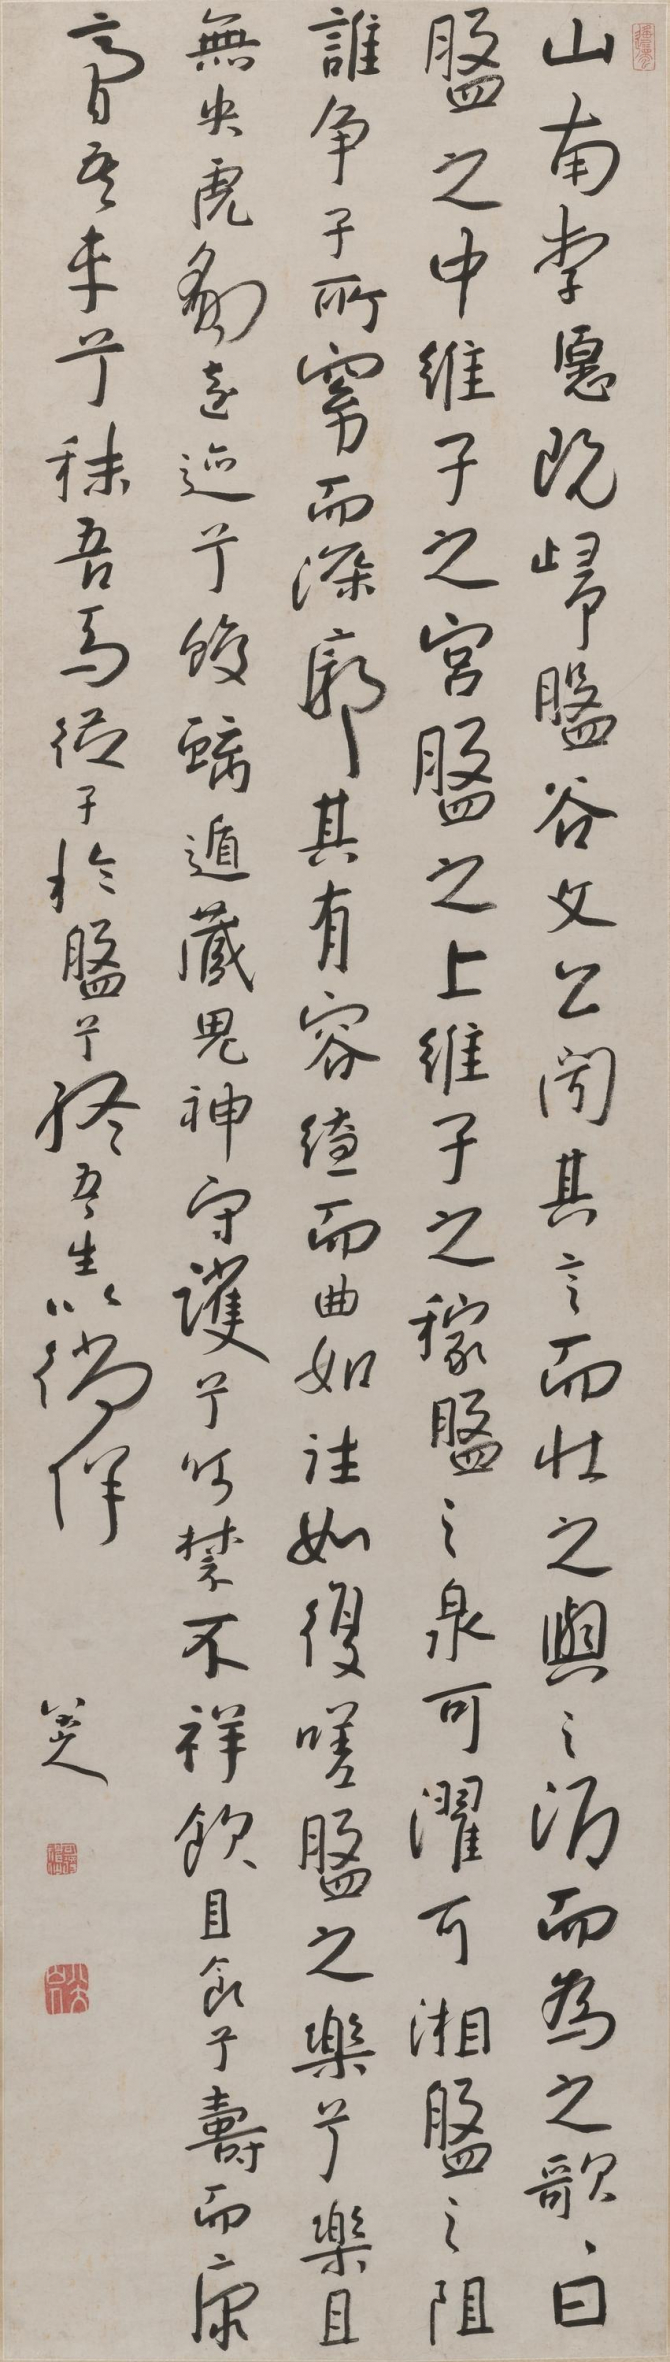 山南李愿既歸盤谷文公聞其言而壯之與之酒而為之歌歌曰
盤之中維子之宮盤之上維子之稼盤之泉可濯可湘盤之阻
誰争子所窈而深廓其有容繚而曲如往如復嗟盤之樂兮樂且
無央虎豹遠迹兮蛟螭遁藏鬼神守護兮呵禁不祥飲且食兮壽而康
膏吾車兮秣吾馬從子於盤兮終吾生以徜徉
八大山人